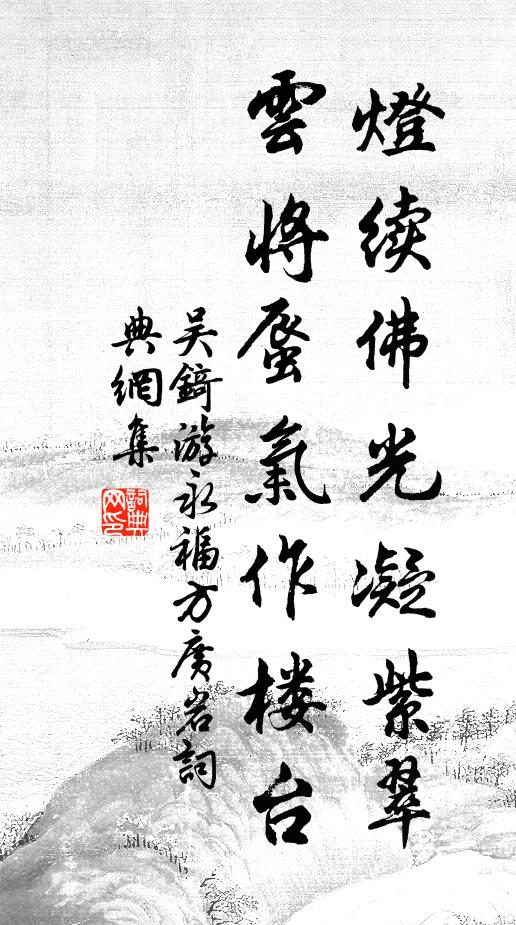 燈续佛光凝紫翠
雲将蜃氣作楼台
吴錡游永福方廣岩詞
典網集
詞典
网印